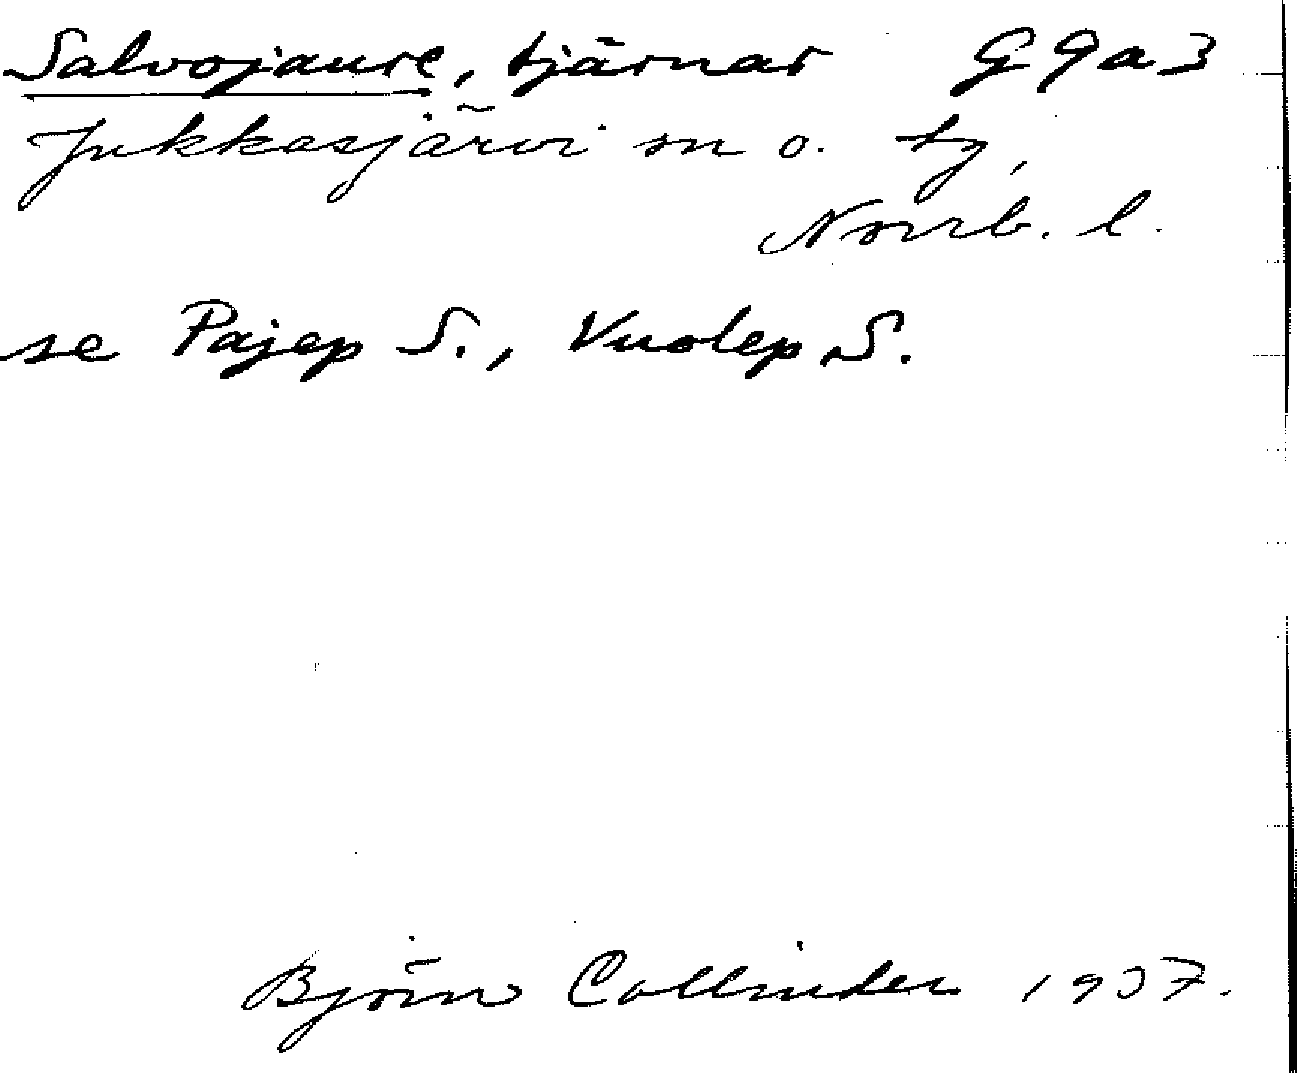 Salvojaure, tjärnar G9a3
Jukkasjärvi sn o. tg,
Norrb. l.
se Pajep S., Vuolep S.
Björn Collinder 1937.